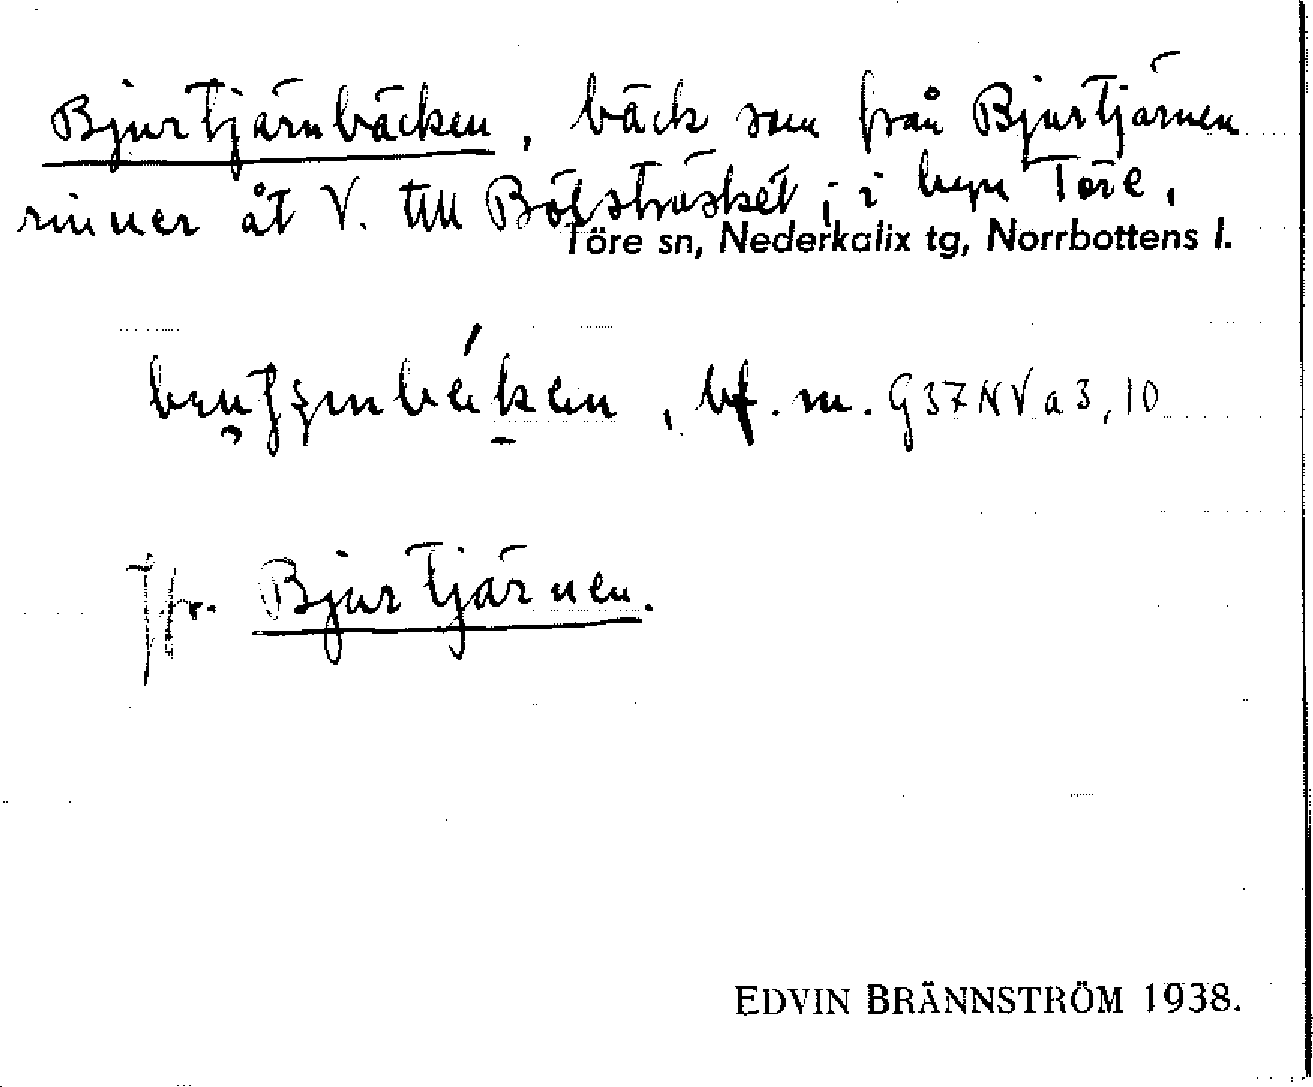 Bjurtjärnbäcken, bäck som från Bjurtjärnen
rinner åt V. till Bölsträsket; i byn Töre,
Töre sn, Nederkalix tg, Norrbottens l.
, bf. m. G37NVa3,10
Jfr. Bjurtjärnen.
EDVIN BRÄNNSTRÖM 1938.